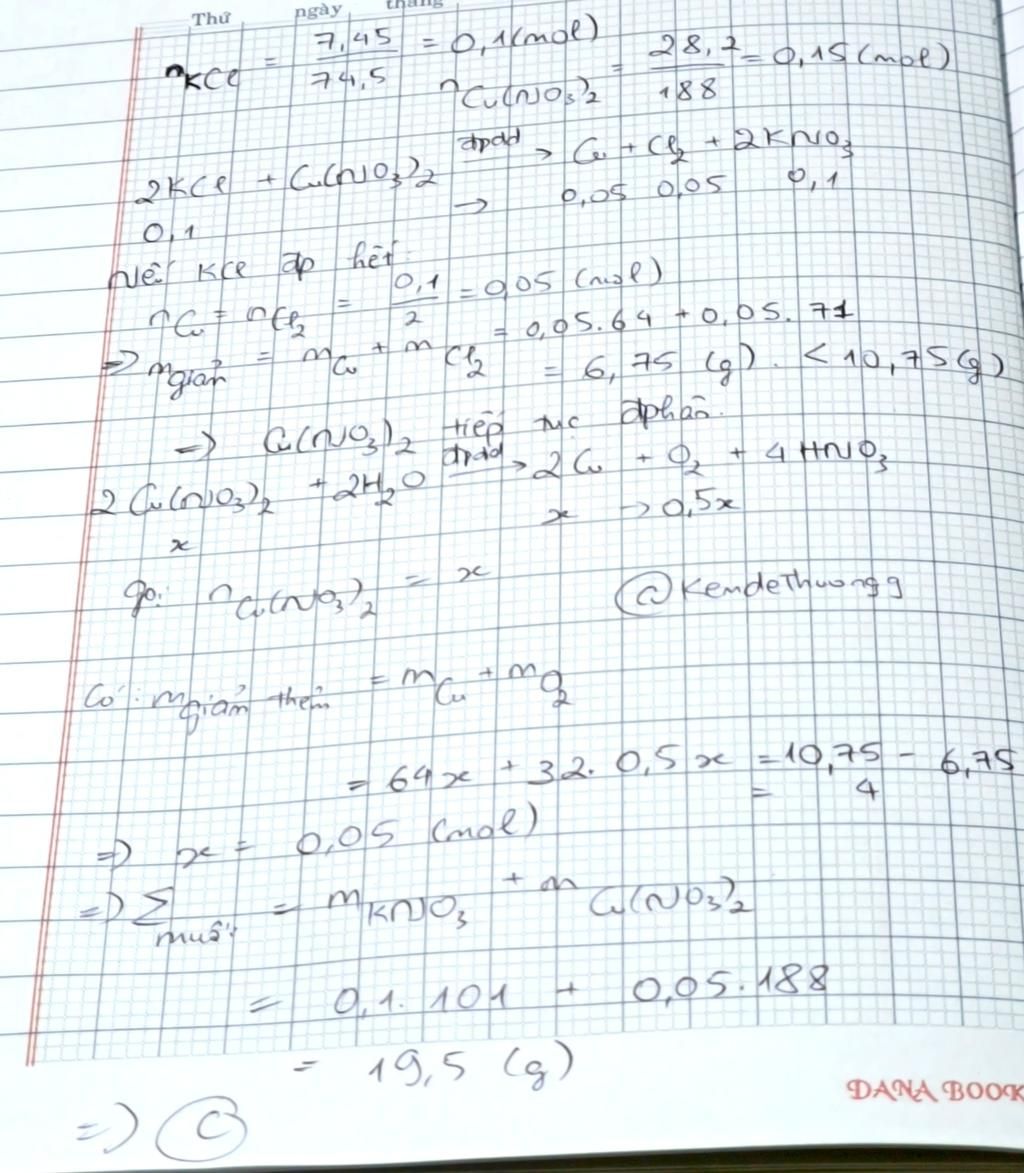 Thứ ngày tháng
nKCl = 7,45/74,5 = 0,1(mol) nCu(NO3)2 = 28,2/188 = 0,15 (mol)
2KCl + Cu(NO3)2 đpdd → Cu + Cl2 + 2KNO3
0,1 → 0,05 0,05 0,1
Nếu KCl đp hết:
nCu = nCl2 = 0,1/2 = 0,05 (mol)
=> mgiảm = mCu + mCl2 = 0,05.64 + 0,05.71
= 6,75 (g) . < 10,75(g)
=> Cu(NO3)2 tiếp tục đphân.
2Cu(NO3)2 + 2H2O đpdd → 2Cu + O2 + 4HNO3
x x → 0,5x
gọi nCu(NO3)2 = x
@KemdeThuongg
Có: mgiảm thêm = mCu + mO2
= 64x + 32. 0,5x = 10,75 - 6,75
= 4
=> x = 0,05 (mol)
=> Σmuối = mKNO3 + mCu(NO3)2
= 0,1.101 + 0,05.188
= 19,5 (g)
=> C
DANA BOOK